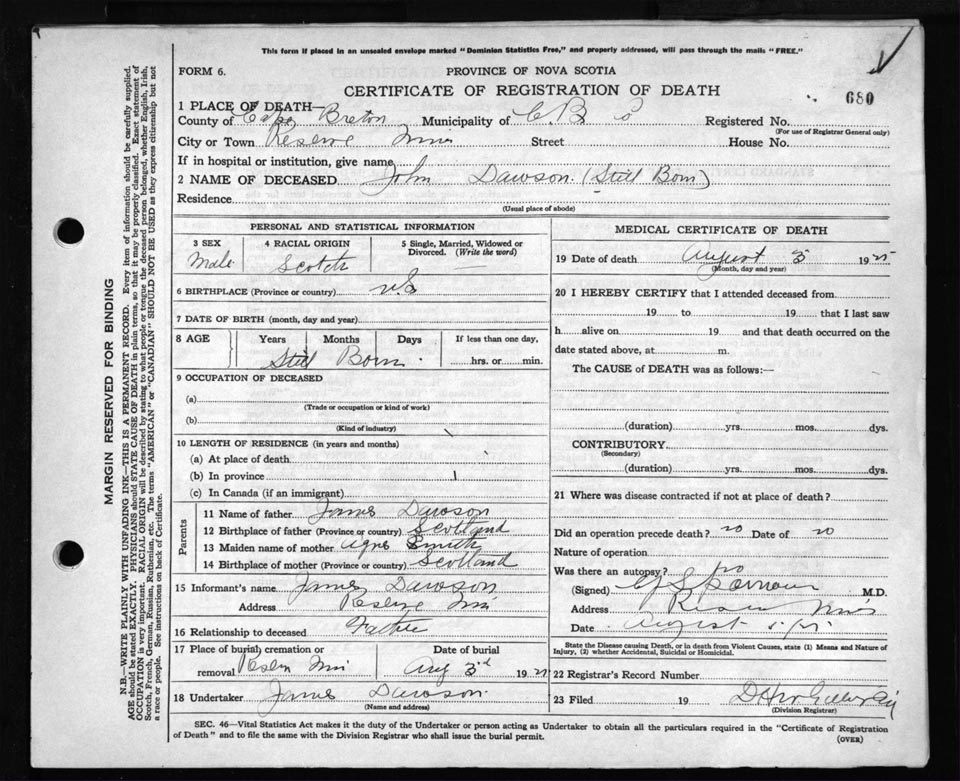 This form if placed in an unsealed envelope marked "Dominion Statistics Free," and properly addressed, will pass through the mails "FREE."
FORM 6.
PROVINCE OF NOVA SCOTIA
CERTIFICATE OF REGISTRATION OF DEATH
680
1 PLACE OF DEATH—
County of Cape Breton Municipality of C. B. Registered No.
(For use of Registrar General only)
City or Town Reserve Mines Street House No.
If in hospital or institution, give name
2 NAME OF DECEASED John Dawson (Still Born)
Residence
(Usual place of abode)
PERSONAL AND STATISTICAL INFORMATION
3 SEX 4 RACIAL ORIGIN 5 Single, Married, Widowed or Divorced. (Write the word)
Male Scotch S
6 BIRTHPLACE (Province or country) N.S.
7 DATE OF BIRTH (month, day and year)
8 AGE Years Months Days If less than one day,
Still Born hrs. or min.
9 OCCUPATION OF DECEASED
(a)
(Trade or occupation or kind of work)
(b)
(Kind of industry)
10 LENGTH OF RESIDENCE (in years and months)
(a) At place of death
(b) In province
(c) In Canada (if an immigrant)
Parents
11 Name of father James Dawson
12 Birthplace of father (Province or country) Scotland
13 Maiden name of mother Agnes Smith
14 Birthplace of mother (Province or country) Scotland
15 Informant's name James Dawson
Address Reserve Mines
16 Relationship to deceased Father
17 Place of burial, cremation or removal Date of burial
Reserve Mines Aug 3rd 19
18 Undertaker James Dawson
(Name and address)
MEDICAL CERTIFICATE OF DEATH
19 Date of death August 3 19
(Month, day and year)
20 I HEREBY CERTIFY that I attended deceased from
19 to 19 that I last saw
h alive on 19 and that death occurred on
date stated above, at m.
The CAUSE of DEATH was as follows:—
(duration) yrs. mos. dys.
CONTRIBUTORY
(Secondary)
(duration) yrs. mos. dys.
21 Where was disease contracted if not at place of death?
Did an operation precede death? no Date of no
Nature of operation
Was there an autopsy? no
(Signed) M.D.
Address Reserve Mines
Date August
State the Disease causing Death, or in death from Violent Causes, state (1) Means and Nature of Injury, (2) whether Accidental, Suicidal or Homicidal.
22 Registrar's Record Number
23 Filed 19
(Division Registrar)
SEC. 46—Vital Statistics Act makes it the duty of the Undertaker or person acting as Undertaker to obtain all the particulars required in the "Certificate of Registration
of Death" and to file the same with the Division Registrar who shall issue the burial permit.
(OVER)
MARGIN RESERVED FOR BINDING
N.B.—WRITE PLAINLY WITH UNFADING INK—THIS IS A PERMANENT RECORD. Every item of information should be carefully supplied.
AGE should be stated EXACTLY. PHYSICIANS should STATE CAUSE OF DEATH in plain terms, so that it may be properly classified. Exact statement of
OCCUPATION is very important. RACIAL ORIGIN will be described by stating to what people or tongue the deceased person belonged, whether English, Irish,
Scotch, French, German, Russian, Ruthenian, etc. The terms "AMERICAN" or "CANADIAN" SHOULD NOT BE USED as they express citizenship but not
a race or people. See instructions on back of Certificate.